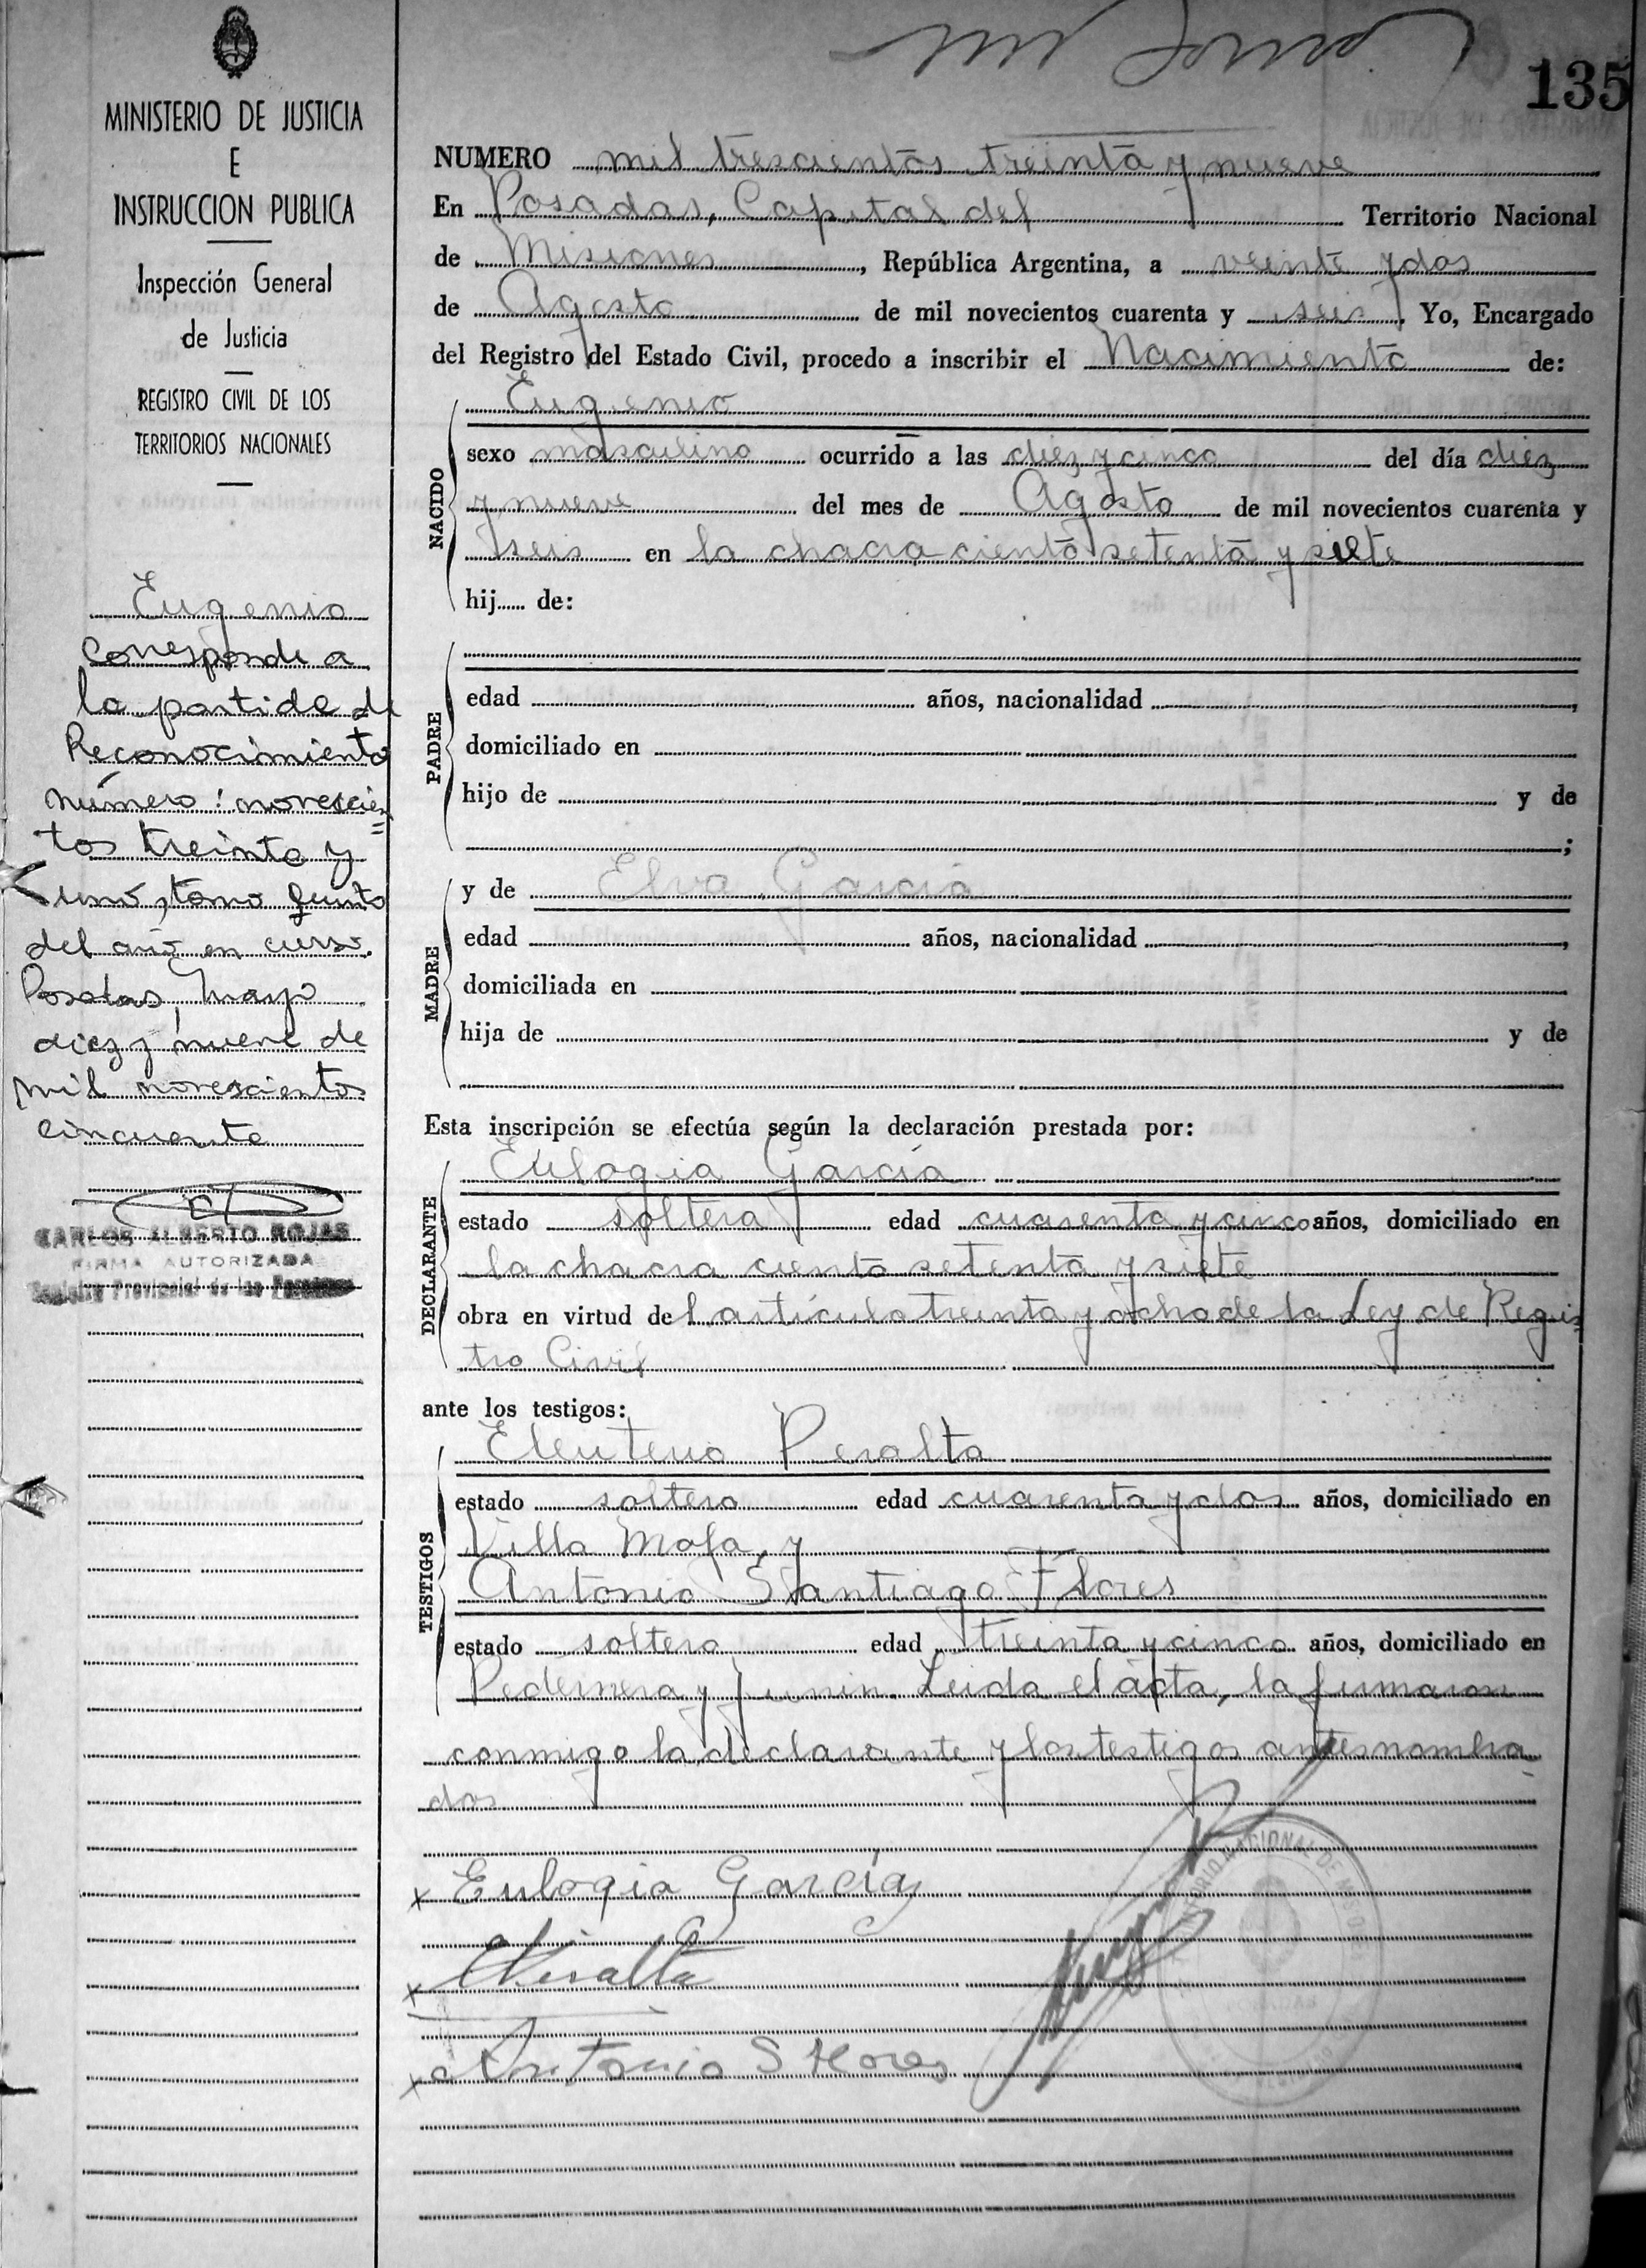 135
MINISTERIO DE JUSTICIA
E
INSTRUCCION PUBLICA
Inspección General
de Justicia
REGISTRO CIVIL DE LOS
TERRITORIOS NACIONALES
Eugenio
Corresponde a
la partida de
Reconocimiento
número: novescien=
tos treinta y
uno, tomo quinto
del año en curso.
Posadas, Mayo
diez y nueve de
mil novescientos
cincuenta
CARLOS ALBERTO ROJAS
FIRMA AUTORIZADA
Registro Provincial de las Personas
NUMERO mil trescientos treinta y nueve
En Posadas, Capital del Territorio Nacional
de Misiones, República Argentina, a veinte y dos
de Agosto de mil novecientos cuarenta y seis. Yo, Encargado
del Registro del Estado Civil, procedo a inscribir el Nacimiento de:
NACIDO
Eugenio
sexo masculino ocurrido a las diez y cinco del día diez
y nueve del mes de Agosto de mil novecientos cuarenta y
seis en la chacra ciento setenta y siete
hij...... de:
PADRE
edad años, nacionalidad ,
domiciliado en
hijo de y de
;
MADRE
y de Elva García
edad años, nacionalidad ,
domiciliada en
hija de y de
Esta inscripción se efectúa según la declaración prestada por:
DECLARANTE
Eulogia García
estado soltera edad cuarenta y cinco años, domiciliado en
la chacra ciento setenta y siete
obra en virtud del artículo treinta y ocho de la Ley de Regis
tro Civil
ante los testigos:
TESTIGOS
Eleuterio Peralta
estado soltero edad cuarenta y dos años, domiciliado en
Villa Mola, y
Antonio Santiago Flores
estado soltero edad treinta y cinco años, domiciliado en
Pedernera y Junin. Leida el acta, la firmaron
conmigo la declarante y los testigos antes nombra
dos
x Eulogia García
x EPeralta
x Antonio S Flores
TERRITORIO NACIONAL DE MISIONES